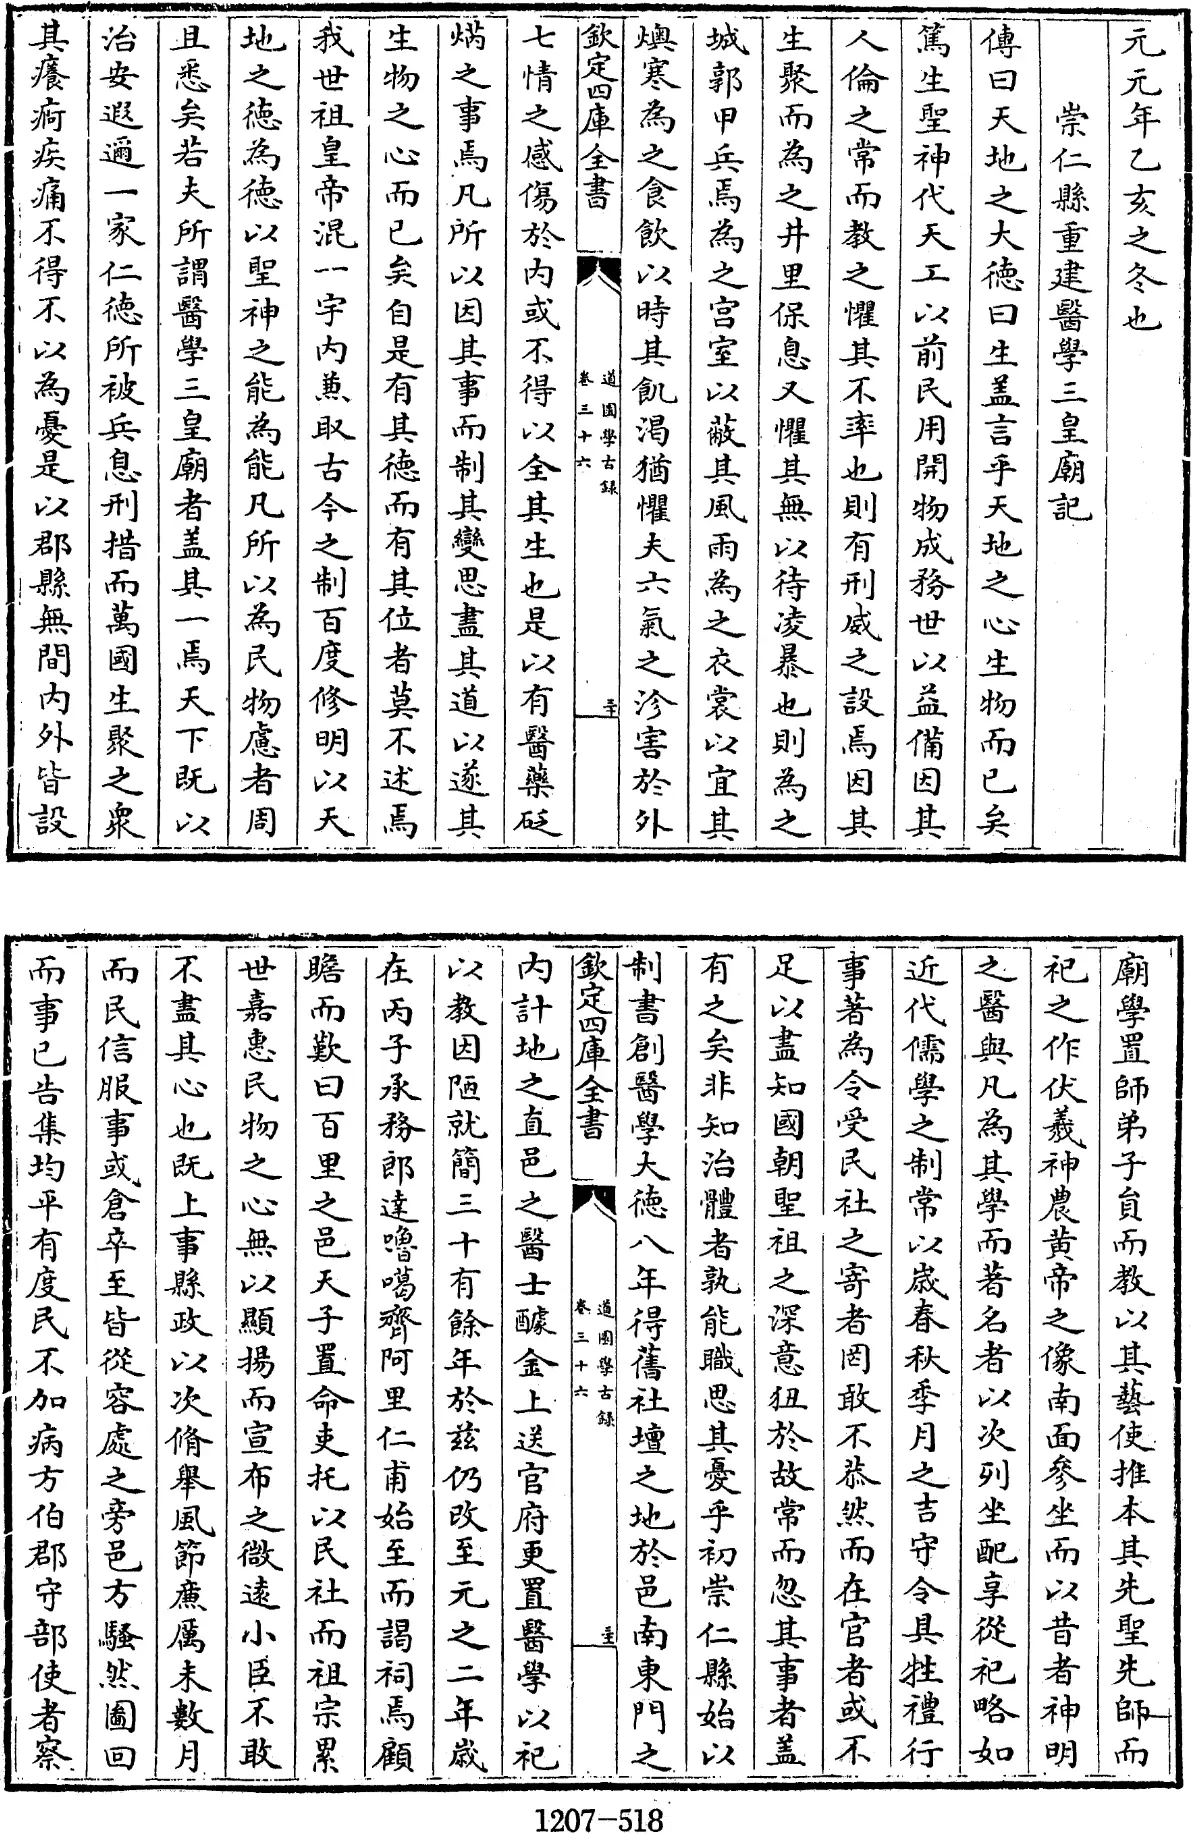 元元年乙亥之冬也
崇仁縣重建醫學三皇廟記
傳曰天地之大德曰生盖言乎天地之心生物而已矣
篤生聖神代天工以前民用開物成務世以益備因其
人倫之常而教之懼其不率也則有刑威之設焉因其
生聚而為之井里保息又懼其無以待凌暴也則為之
城郭甲兵焉為之宫室以蔽其風雨為之衣裳以宜其
燠寒為之食飲以時其飢渴猶懼夫六氣之沴害於外
欽定四庫全書
道園學古録
卷三十六
二十
七情之感傷於内或不得以全其生也是以有醫藥砭
焫之事焉凡所以因其事而制其變思盡其道以遂其
生物之心而已矣自是有其德而有其位者莫不述焉
我世祖皇帝混一宇内兼取古今之制百度修明以天
地之德為德以聖神之能為能凡所以為民物慮者周
且悉矣若夫所謂醫學三皇廟者盖其一焉天下既以
治安遐邇一家仁德所被兵息刑措而萬國生聚之衆
其癢痾疾痛不得不以為憂是以郡縣無間内外皆設
廟學置師弟子員而教以其藝使推本其先聖先師而
祀之作伏羲神農黄帝之像南面參坐而以昔者神明
之醫與凡為其學而著名者以次列坐配享從祀略如
近代儒學之制常以歲春秋季月之吉守令具牲禮行
事著為令受民社之寄者罔敢不恭然而在官者或不
足以盡知國朝聖祖之深意狃於故常而忽其事者盖
有之矣非知治體者孰能職思其憂乎初崇仁縣始以
制書創醫學大德八年得舊社壇之地於邑南東門之
欽定四庫全書
道園學古録
卷三十六
二十一
内計地之直邑之醫士醵金上送官府更置醫學以祀
以教因陋就簡三十有餘年於兹仍改至元之二年歲
在丙子承務郎達嚕噶齊阿里仁甫始至而謁祠焉顧
瞻而歎曰百里之邑天子置命吏托以民社而祖宗累
世嘉惠民物之心無以顯揚而宣布之微遠小臣不敢
不盡其心也既上事縣政以次脩舉風節廉厲未數月
而民信服事或倉卒至皆從容處之旁邑方騷然圖回
而事已告集均平有度民不加病方伯郡守部使者察
1207-518